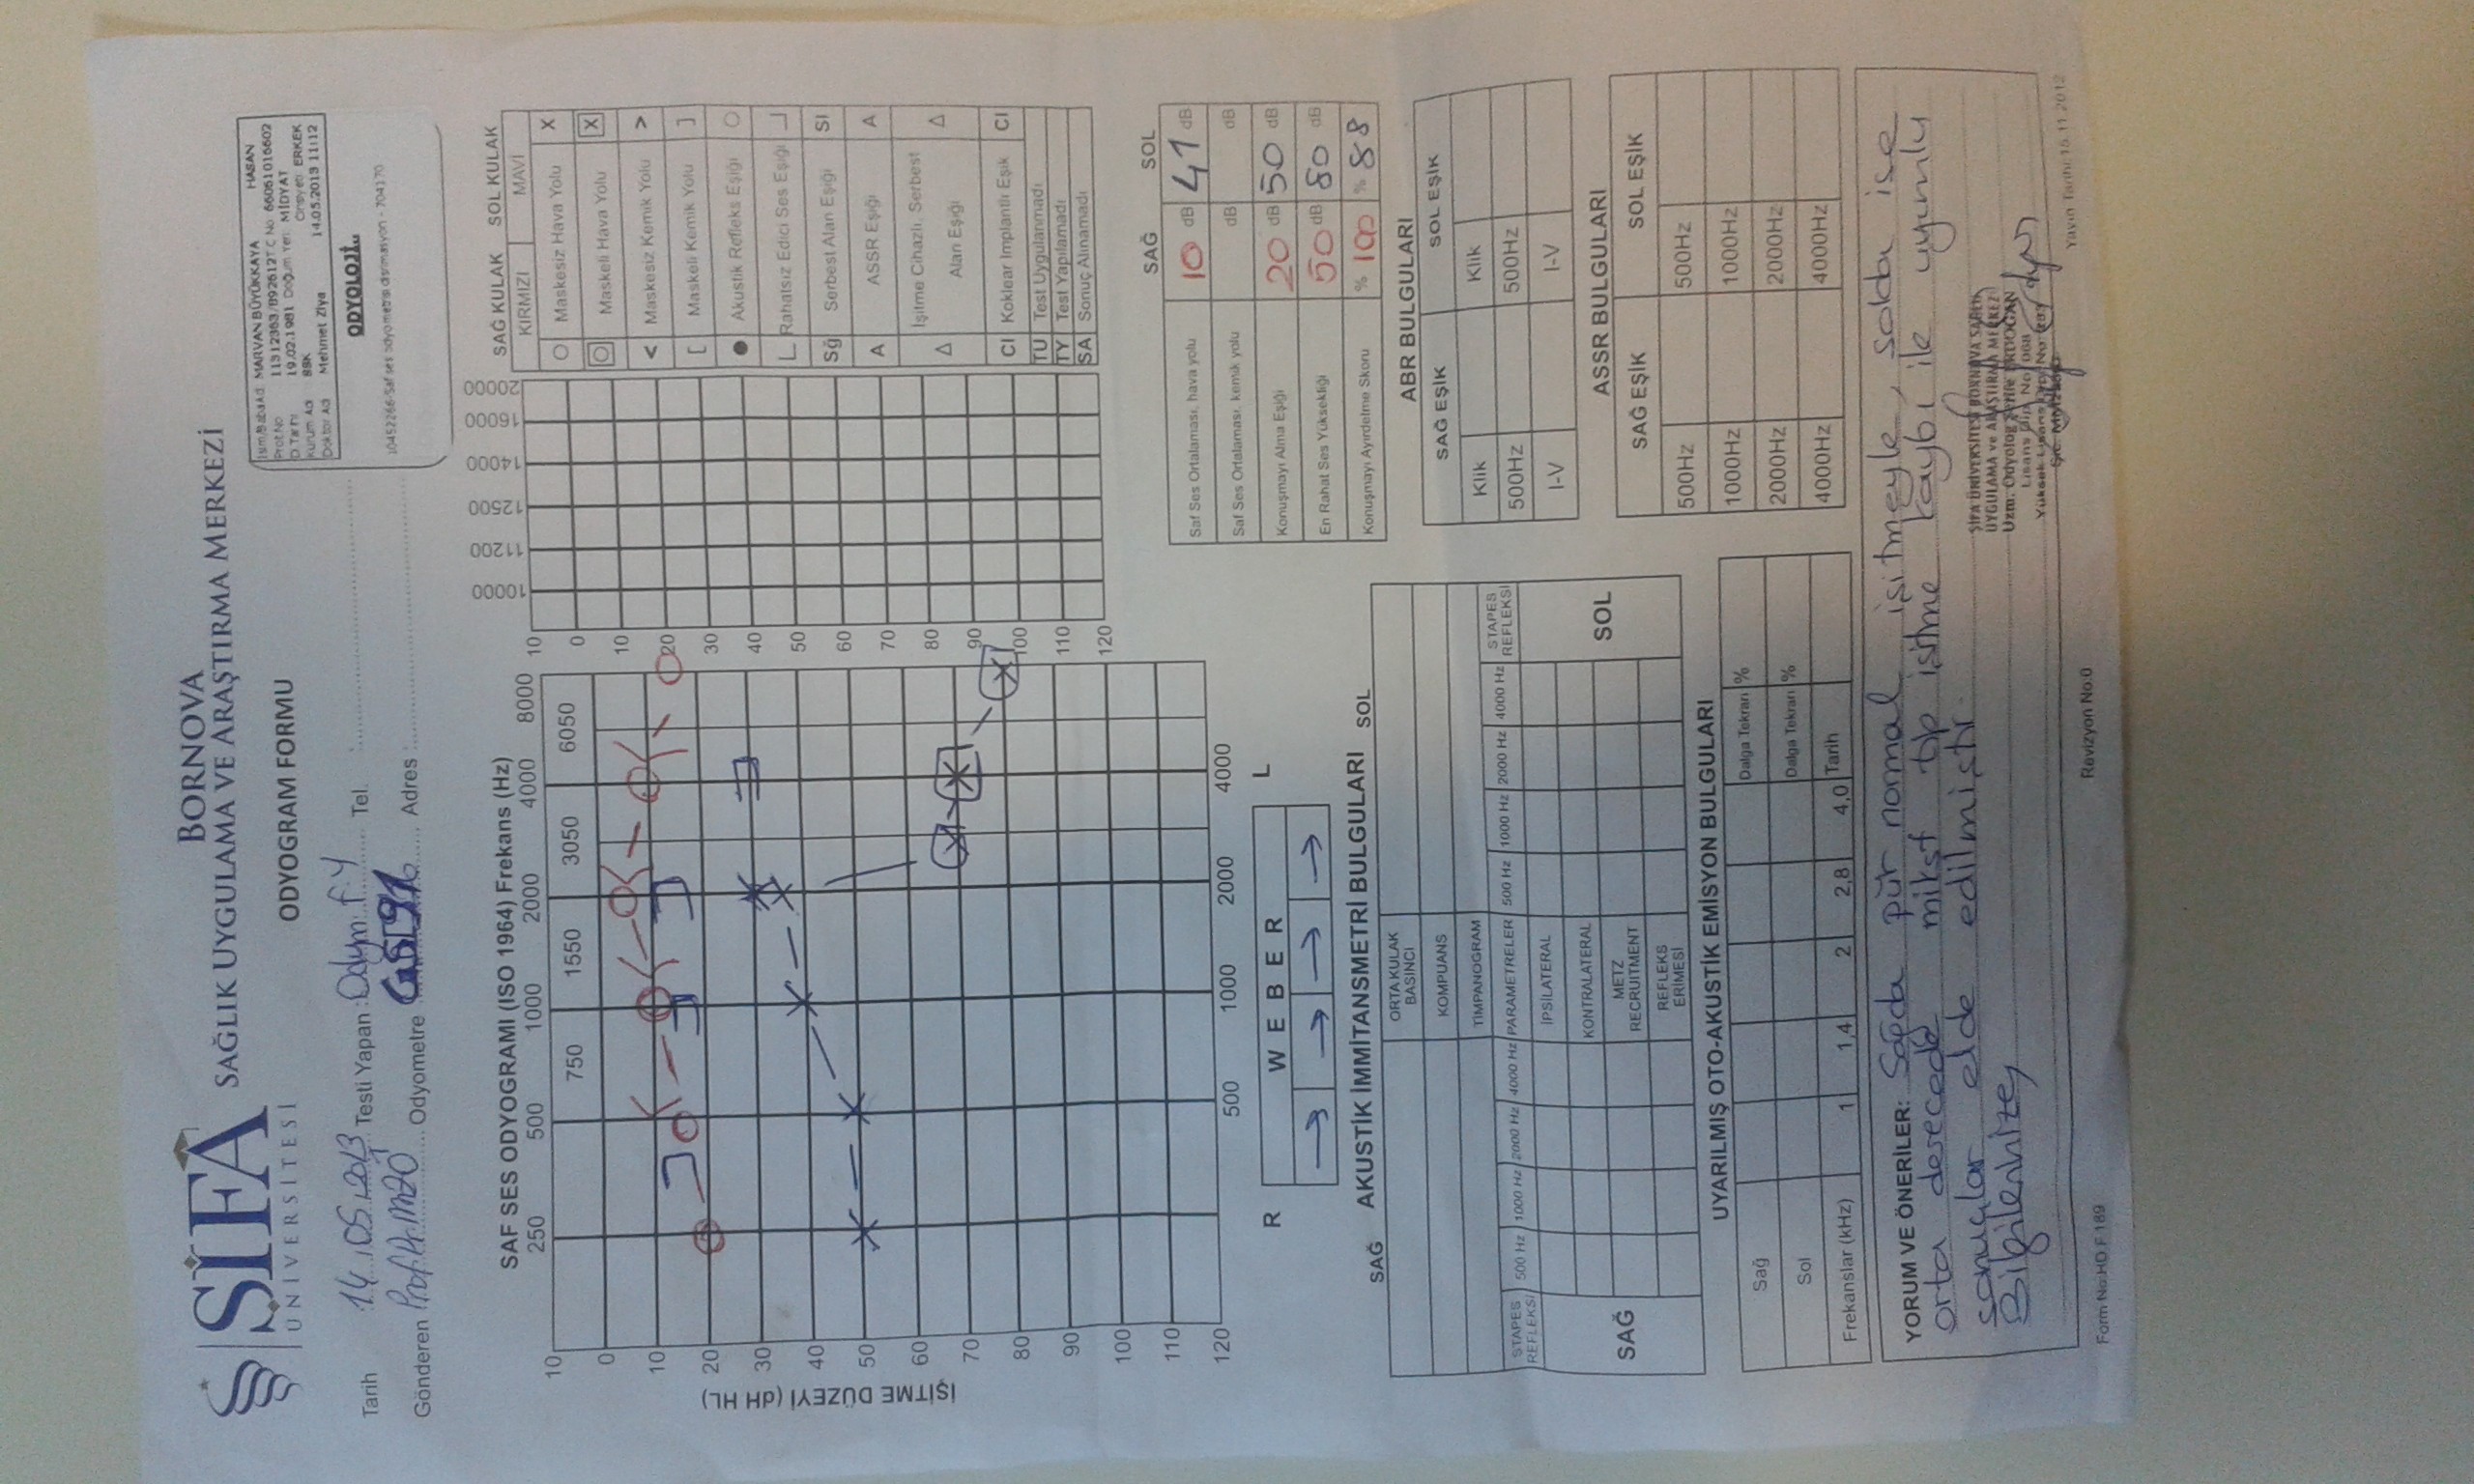 ŞİFA
ÜNİVERSİTESİ
BORNOVA
SAĞLIK UYGULAMA VE ARAŞTIRMA MERKEZİ
ODYOGRAM FORMU
İsim/BabaAd: MARVAN BÜYÜKKAYA HASAN
Prot.No 11312363/892612 T.C No 66061016602
D.Tarihi 19.02.1981 Doğum Yeri MİDYAT
Kurum Adı SSK Cinsiyeti ERKEK
Doktor Adı Mehmet Ziya 14.05.2013 11:12
ODYOLOJİ
Tarih 14.05.2013 Testi Yapan : Odym. F.Y Tel. :
Gönderen Odyometre Adres :
SAF SES ODYOGRAMI (ISO 1964) Frekans (Hz)
250 500 1000 2000 4000 8000
750 1550 3050 6050
10000 11200 12500 14000 16000 20000
İŞİTME DÜZEYİ (dH HL)
10
0
10
20
30
40
50
60
70
80
90
100
110
120
500 1000 2000 4000
10
0
10
20
30
40
50
60
70
80
90
100
110
120
SAĞ KULAK SOL KULAK
KIRMIZI MAVİ
O Maskesiz Hava Yolu X
O Maskeli Hava Yolu X
< Maskesiz Kemik Yolu >
[ Maskeli Kemik Yolu ]
● Akustik Refleks Eşiği ○
Rahatsız Edici Ses Eşiği
Sğ Serbest Alan Eşiği Sl
A ASSR Eşiği A
Δ İşitme Cihazlı, Serbest Alan Eşiği Δ
CI Koklear İmplantlı Eşik CI
TU Test Uygulanamadı
TY Test Yapılamadı
SA Sonuç Alınamadı
R WEBER L
→ → → →
SAĞ SOL
Saf Ses Ortalaması, hava yolu 10 dB 41 dB
Saf Ses Ortalaması, kemik yolu dB dB
Konuşmayı Alma Eşiği 20 dB 50 dB
En Rahat Ses Yüksekliği 50 dB 80 dB
Konuşmayı Ayırdetme Skoru % 100 % 88
SAĞ AKUSTİK İMMİTANSMETRİ BULGULARI SOL
ORTA KULAK BASINCI
KOMPUANS
TİMPANOGRAM
STAPES REFLEKSİ 500 Hz 1000 Hz 2000 Hz 4000 Hz PARAMETRELER 500 Hz 1000 Hz 2000 Hz 4000 Hz STAPES REFLEKSİ
SAĞ İPSİLATERAL SOL
KONTRALATERAL
METZ RECRUITMENT
REFLEKS ERİMESİ
ABR BULGULARI
SAĞ EŞİK SOL EŞİK
Klik Klik
500Hz 500Hz
I-V I-V
ASSR BULGULARI
SAĞ EŞİK SOL EŞİK
500Hz 500Hz
1000Hz 1000Hz
2000Hz 2000Hz
4000Hz 4000Hz
UYARILMIŞ OTO-AKUSTİK EMİSYON BULGULARI
Sağ Dalga Tekrarı %
Sol Dalga Tekrarı %
Frekanslar (kHz) 1 1,4 2 2,8 4,0 Tarih
YORUM VE ÖNERİLER: Sağda pür normal işitmeyle, solda ise
orta derecede mikst tip işitme kaybı ile uyumlu
sonuçlar elde edilmiştir.
Bilgilerinize,
ŞİFA ÜNİVERSİTESİ BORNOVA SAĞLIK
UYGULAMA ve ARAŞTIRMA MERKEZİ
Form No:HD.F.189 Revizyon No:0 Yayın Tarihi:15.11.2012